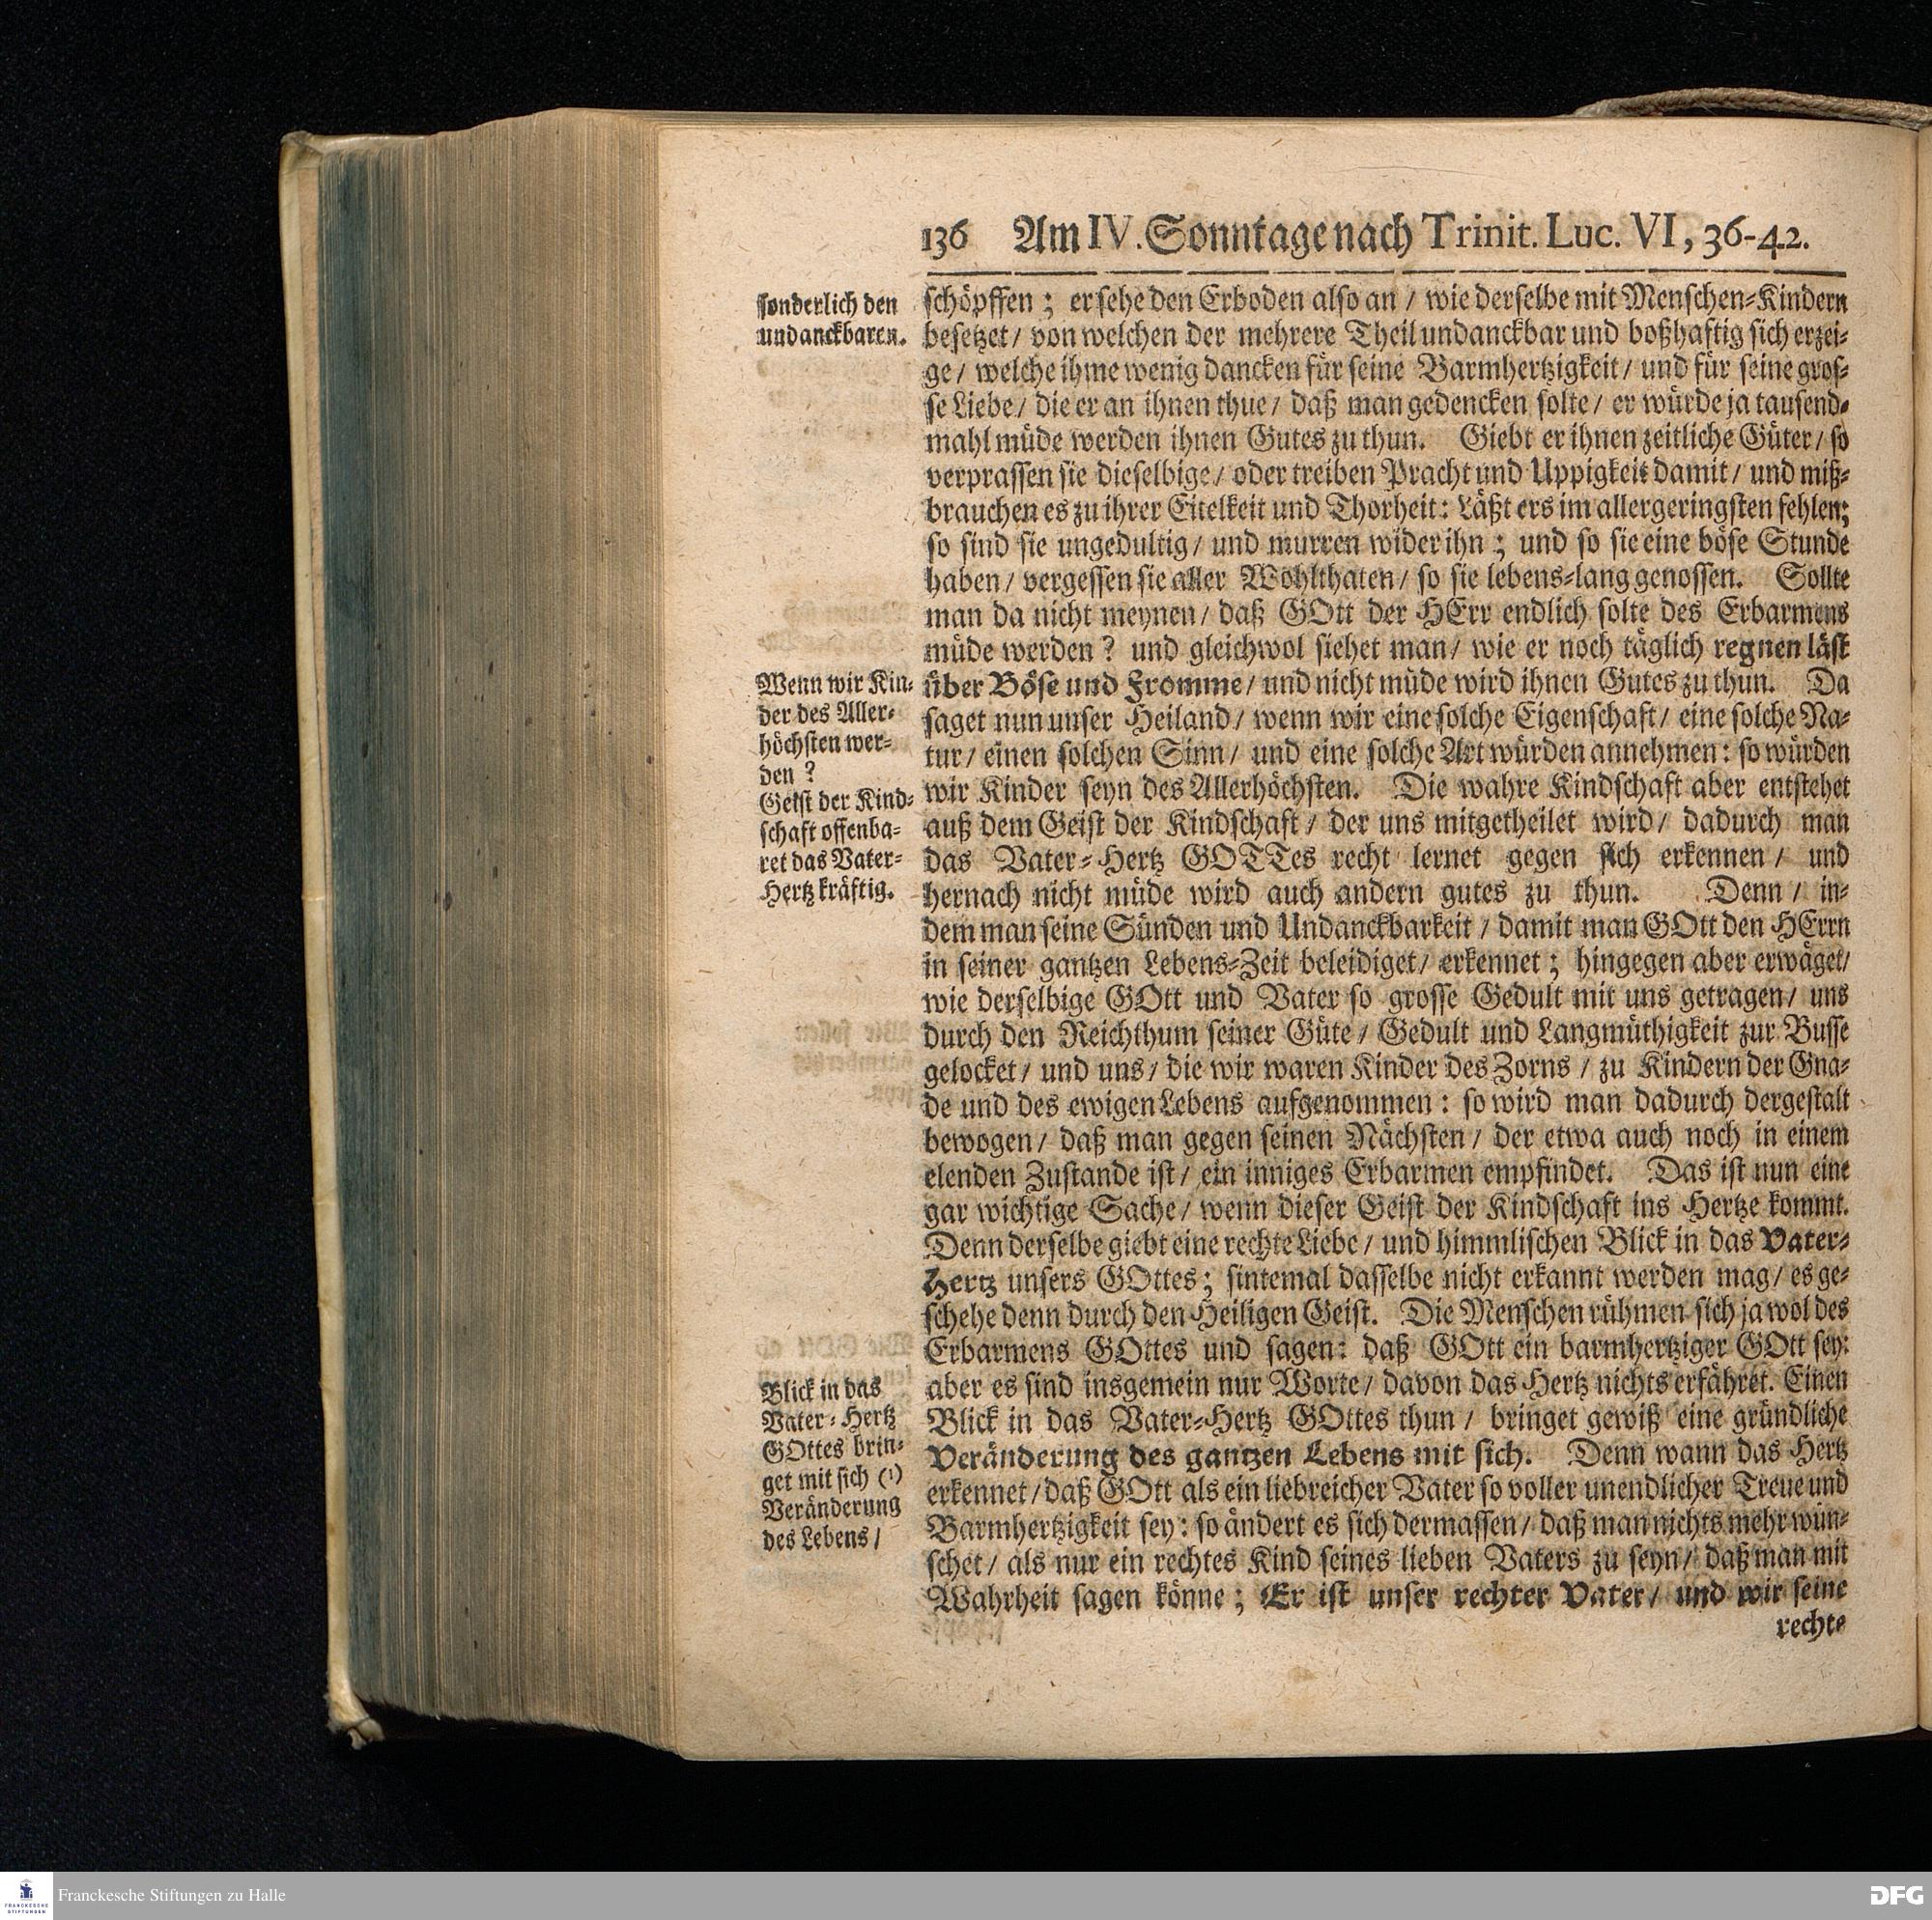 136 Am IV. Sonntage nach Trinit. Luc. VI, 36-42.
sonderlich den
undanckbaren.
schöpffen; er sehe den Erboden also an / wie derselbe mit Menschen-Kindern
besetzet / von welchen der mehrere Theil undanckbar und boßhafftig sich erzei-
ge / welche ihme wenig dancken für seine Barmhertzigkeit / und für seine gros-
se Liebe / die er an ihnen thue / daß man gedencken solte / er würde ja tausend-
mahl müde werden ihnen Gutes zu thun. Giebt er ihnen zeitliche Güter / so
verprassen sie dieselbige / oder treiben Pracht und Uppigkeit damit / und miß-
brauchen es zu ihrer Eitelkeit und Thorheit: Läßt ers im allergeringsten fehlen;
so sind sie ungedultig / und murren wider ihn; und so sie eine böse Stunde
haben / vergessen sie aller Wohlthaten / so sie lebens-lang genossen. Sollte
man da nicht meynen / daß GOtt der HErr endlich solte des Erbarmens
müde werden? und gleichwol siehet man / wie er noch täglich regnen läst
über Böse und Fromme / und nicht müde wird ihnen Gutes zu thun. Da
saget nun unser Heiland / wenn wir eine solche Eigenschaft / eine solche Na-
tur / einen solchen Sinn / und eine solche Art würden annehmen: so würden
wir Kinder seyn des Allerhöchsten. Die wahre Kindschaft aber entstehet
auß dem Geist der Kindschaft / der uns mitgetheilet wird / dadurch man
das Vater-Hertz GOTTes recht lernet gegen sich erkennen / und
hernach nicht müde wird auch andern gutes zu thun. Denn / in-
dem man seine Sünden und Undanckbarkeit / damit man GOtt den HErrn
in seiner gantzen Lebens-Zeit beleidiget / erkennet; hingegen aber erwäget /
wie derselbige GOtt und Vater so grosse Gedult mit uns getragen / uns
durch den Reichthum seiner Güte / Gedult und Langmüthigkeit zur Busse
gelocket / und uns / die wir waren Kinder des Zorns / zu Kindern der Gna-
de und des ewigen Lebens aufgenommen: so wird man dadurch dergestalt
bewogen / daß man gegen seinen Nächsten / der etwa auch noch in einem
elenden Zustande ist / ein inniges Erbarmen empfindet. Das ist nun eine
gar wichtige Sache / wenn dieser Geist der Kindschaft ins Hertze kommt.
Denn derselbe giebt eine rechte Liebe / und himmlischen Blick in das Vater-
Hertz unsers GOttes; sintemal dasselbe nicht erkannt werden mag / es ge-
schehe denn durch den Heiligen Geist. Die Menschen rühmen sich ja wol des
Erbarmens GOttes und sagen: daß GOtt ein barmhertziger GOtt sey:
aber es sind insgemein nur Worte / davon das Hertz nichts erfähret. Einen
Blick in das Vater-Hertz GOttes thun / bringet gewiß eine gründliche
Veränderung des gantzen Lebens mit sich. Denn wann das Hertz
erkennet / daß GOtt als ein liebreicher Vater so voller unendlicher Treue und
Barmhertzigkeit sey: so ändert es sich dermassen / daß man nichts mehr wün-
schet / als nur ein rechtes Kind seines lieben Vaters zu seyn / daß man mit
Wahrheit sagen könne; Er ist unser rechter Vater / und wir seine
rechte
Wenn wir Kin-
der des Aller-
höchsten wer-
den?
Geist der Kind-
schaft offenba-
ret das Vater-
Hertz kräftig.
Blick in das
Vater-Hertz
GOttes brin-
get mit sich (1)
Veränderung
des Lebens /
Franckesche Stiftungen zu Halle
FRANCKESCHE
STIFTUNGEN
DFG